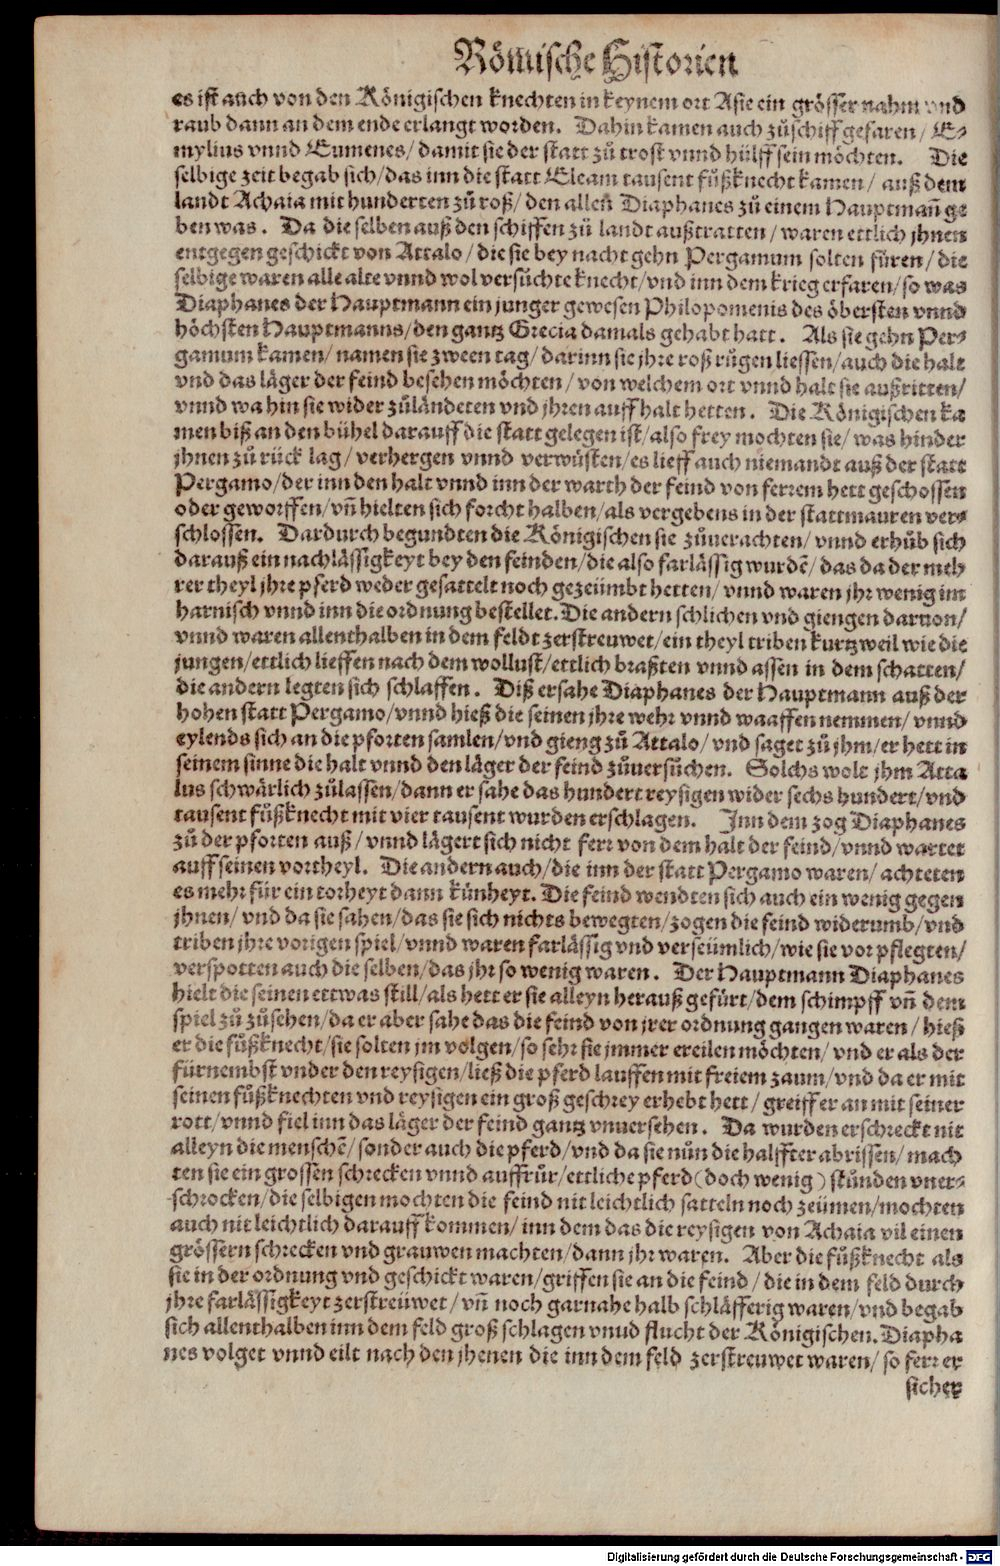 Römische Historien
es ist auch von den Königischen knechten in keynem ort Asie ein grösser nahm vnd
raub dann an dem ende erlangt worden. Dahin kamen auch zů schiff gefaren / E-
mylius vnnd Eumenes / damit sie der statt zů trost vnnd hülff sein möchten. Die
selbige zeit begab sich / das inn die statt Eleam tausent fůßknecht kamen / auß dem
landt Achaia mit hunderten zů roß / den allen Diaphanes zů einem Hauptmañ ge
ben was. Da die selben auß den schiffen zů landt außtratten / waren ettlich jhnen
entgegen geschickt von Attalo / die sie bey nacht gehn Pergamum solten füren / die
selbige waren alle alte vnnd wol versüchte knecht / vnd inn dem krieg erfaren / so was
Diaphanes der Hauptmann ein junger gewesen Philopomenis des öbersten vnnd
höchsten Hauptmanns / den gantz Grecia damals gehabt hatt. Als sie gehn Per-
gamum kamen / namen sie zween tag / darinn sie jhre roß rügen liessen / auch die halt
vnd das läger der feind besehen möchten / von welchem ort vnnd halt sie außritten /
vnnd wa hin sie wider zůländeten vnd jhren auffhalt hetten. Die Königischen ka
men biß an den bühel darauff die statt gelegen ist / also frey mochten sie / was hinder
jhnen zů rück lag / verhergen vnnd verwüsten / es lieff auch niemandt auß der statt
Pergamo / der inn den halt vnnd inn der warth der feind von ferrem hett geschossen
oder geworffen / vñ hielten sich forcht halben / als vergebens in der stattmauren ver-
schlossen. Dardurch begundten die Königischen sie zůuerachten / vnnd erhůb sich
darauß ein nachlässigkeyt bey den feinden / die also farlässig wurdẽ / das da der meh
rer theyl jhre pferd weder gesattelt noch gezeümbt hetten / vnnd waren jhr wenig im
harnisch vnnd inn die ordnung bestellet. Die andern schlichen vnd giengen daruon /
vnnd waren allenthalben in dem feldt zerstreuwet / ein theyl triben kurtzweil wie die
jungen / ettlich lieffen nach dem wollust / ettlich braßten vnnd assen in dem schatten /
die andern legten sich schlaffen. Diß ersahe Diaphanes der Hauptmann auß der
hohen statt Pergamo / vnnd hieß die seinen jhre wehr vnnd waaffen nemmen / vnnd
eylends sich an die pforten samlen / vnd gieng zů Attalo / vnd saget zů jhm / er hett in
seinem sinne die halt vnnd den läger der feind zůuersüchen. Solchs wolt jhm Atta
lus schwärlich zůlassen / dann er sahe das hundert reysigen wider sechs hundert / vnd
tausent fůßknecht mit vier tausent wurden erschlagen. Inn dem zog Diaphanes
zů der pforten auß / vnnd lägert sich nicht ferr von dem halt der feind / vnnd wartet
auff seinen vortheyl. Die andern auch / die inn der statt Pergamo waren / achteten
es mehr für ein torheyt dann künheyt. Die feind wendten sich auch ein wenig gegen
jhnen / vnd da sie sahen / das sie sich nichts bewegten / zogen die feind widerumb / vnd
triben jhre vorigen spiel / vnnd waren farlässig vnd verseümlich / wie sie vor pflegten /
verspotten auch die selben / das jhr so wenig waren. Der Hauptmann Diaphanes
hielt die seinen ettwas still / als hett er sie alleyn herauß gefürt / dem schimpff vñ dem
spiel zů zůsehen / da er aber sahe das die feind von jrer ordnung gangen waren / hieß
er die fůßknecht / sie solten jm volgen / so sehr sie jmmer ereilen möchten / vnd er als der
fürnembst vnder den reysigen / ließ die pferd lauffen mit freiem zaum / vnd da er mit
seinen fůßknechten vnd reysigen ein groß geschrey erhebt hett / greiff er an mit seiner
rott / vnnd fiel inn das läger der feind gantz vnuersehen. Da wurden erschreckt nit
alleyn die menschẽ / sonder auch die pferd / vnd da sie nůn die halffter abrissen / mach
ten sie ein grossen schrecken vnnd auffrůr / ettliche pferd (doch wenig) stůnden vner-
schrocken / die selbigen mochten die feind nit leichtlich satteln noch zeümen / mochten
auch nit leichtlich darauff kommen / inn dem das die reysigen von Achaia vil einen
grössern schrecken vnd grauwen machten / dann jhr waren. Aber die fůßknecht als
sie in der ordnung vnd geschickt waren / griffen sie an die feind / die in dem feld durch
jhre farlässigkeyt zerstreüwet / vñ noch garnahe halb schläfferig waren / vnd begab
sich allenthalben inn dem feld groß schlagen vnud flucht der Königischen. Diapha
nes volget vnnd eilt nach den jhenen die inn dem feld zerstreuwet waren / so ferr er
sicher
Digitalisierung gefördert durch die Deutsche Forschungsgemeinschaft - DFG